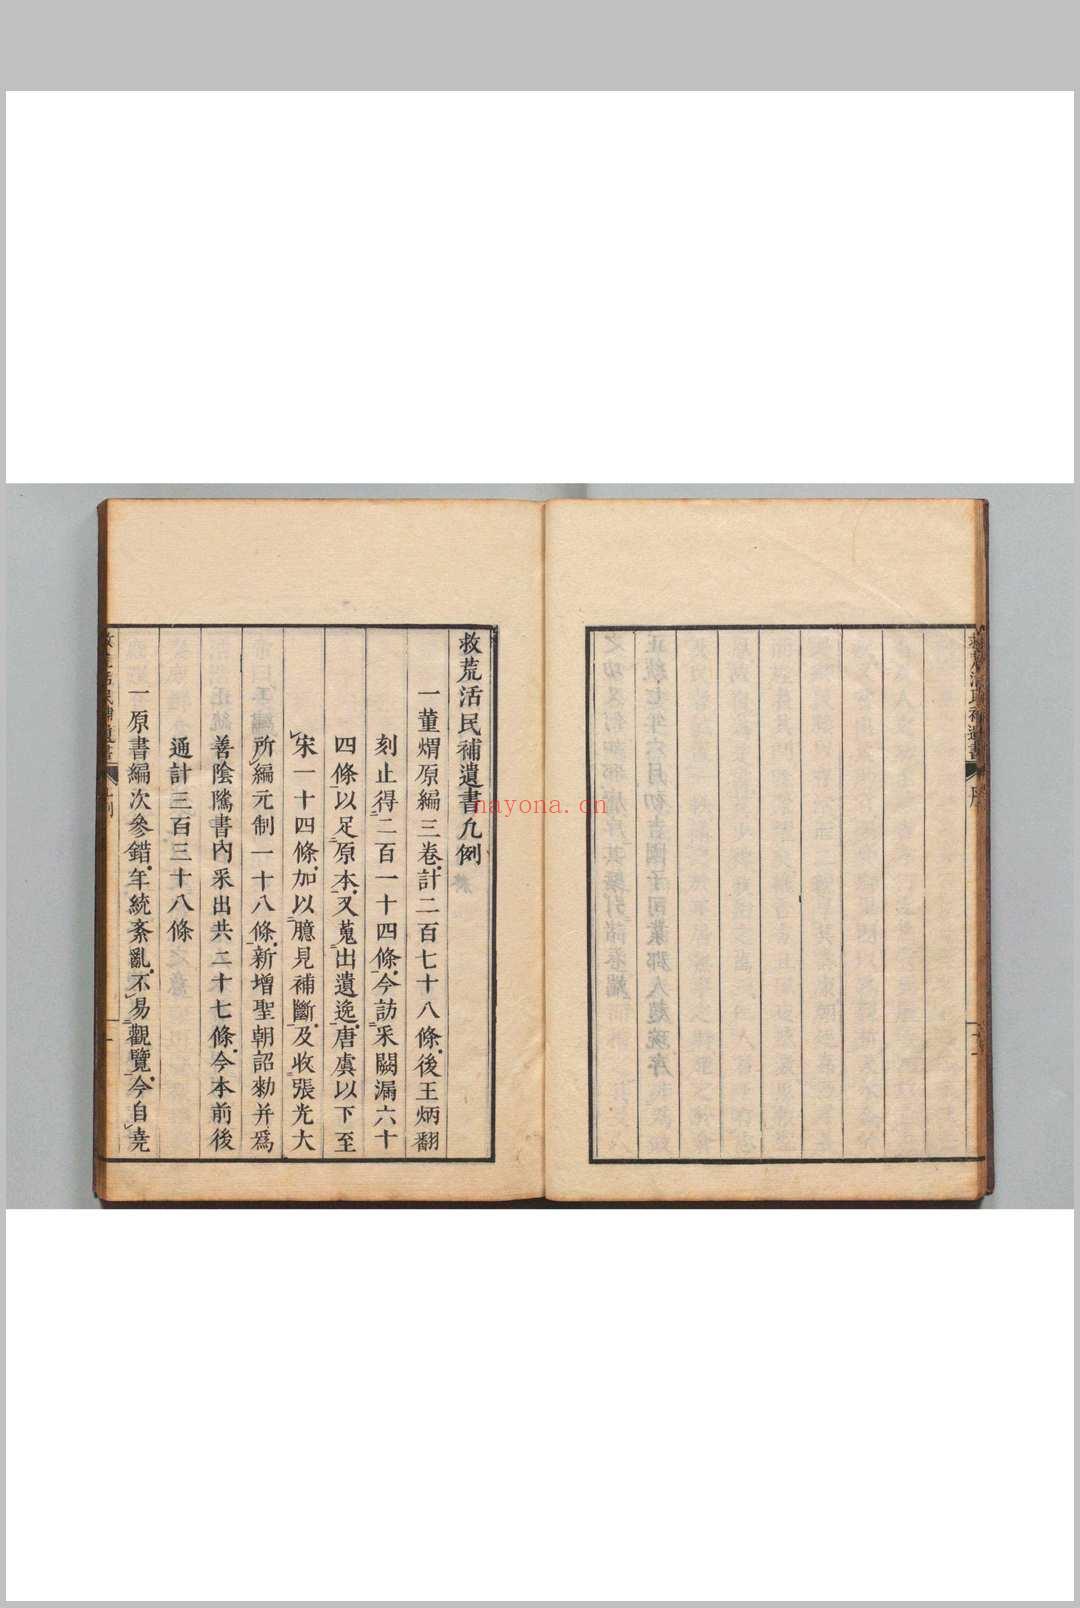 救荒活民補遺書
序
救荒活民補遺書凡例
一董煟原編三卷計二百七十八條後王炳翻
刻止得二百一十四條今訪采闕漏六十
四條以足原本又蒐出遺逸唐虞以下至
宋一十四條加以臆見補斷及收張光大
所編元制一十八條新增聖朝詔勑并爲
善陰騭書內采出共二十七條今本前後
通計三百三十八條
一原書編次參錯年統紊亂不易觀覽今自堯
nayona.cn